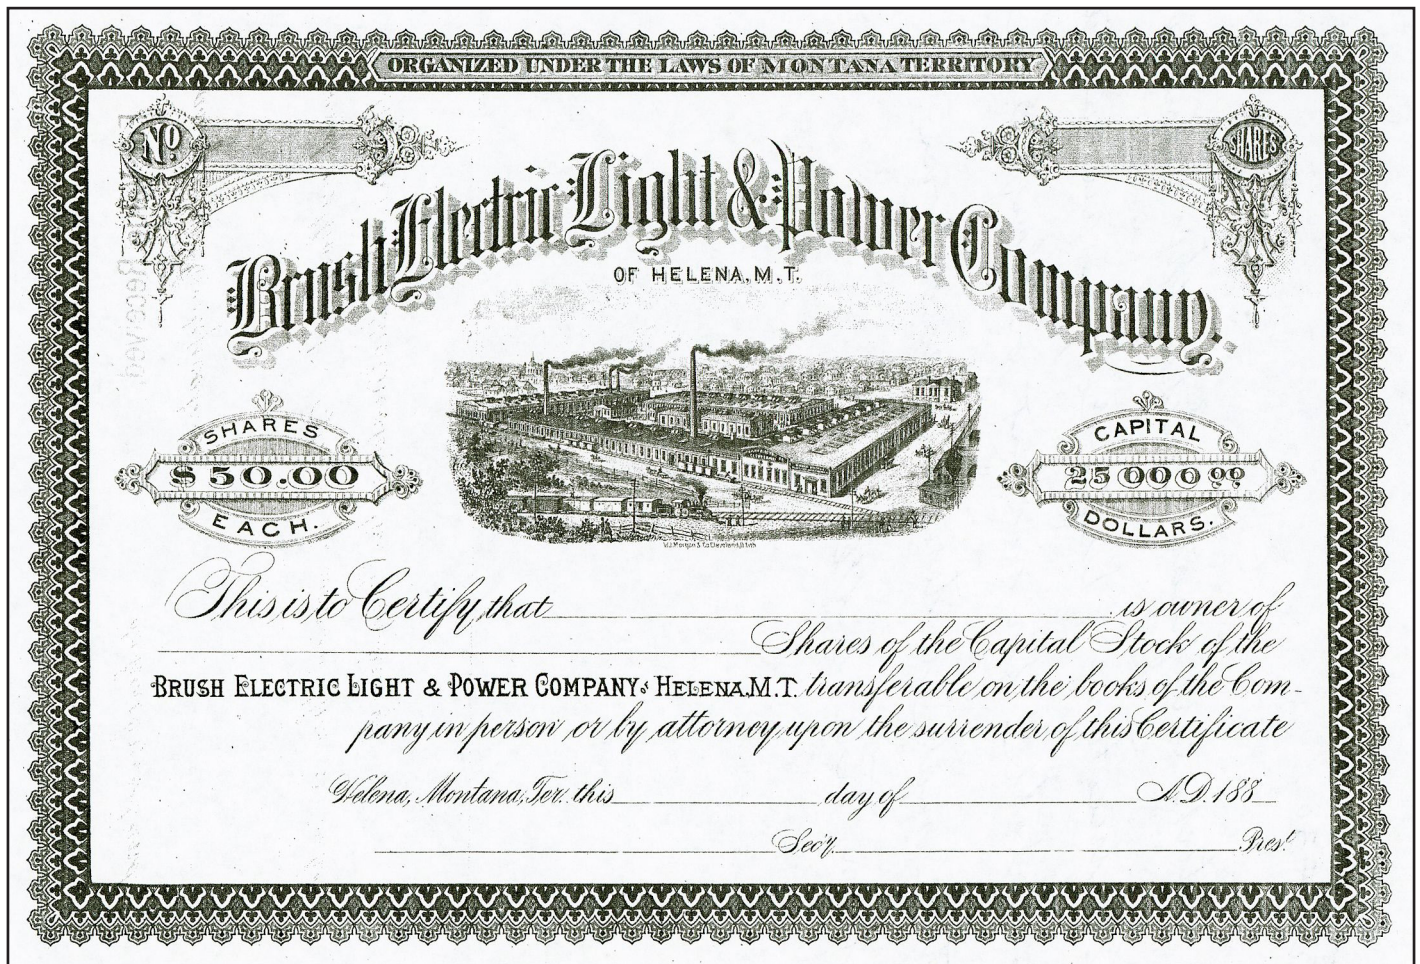 ORGANIZED UNDER THE LAWS OF MONTANA TERRITORY
No.
SHARES
Brush Electric Light & Power Company.
OF HELENA, M.T.
SHARES
$50.00
EACH.
CAPITAL
25000 00
DOLLARS.
W.J. Morgan & Co Cleveland, O Lith
This is to Certify that is owner of
Shares of the Capital Stock of the
BRUSH ELECTRIC LIGHT & POWER COMPANY of HELENA, M.T. transferable on the books of the Com-
pany in person or by attorney upon the surrender of this Certificate
Helena, Montana, Ter. this day of A.D. 188
Sec'y. Prest.
Received